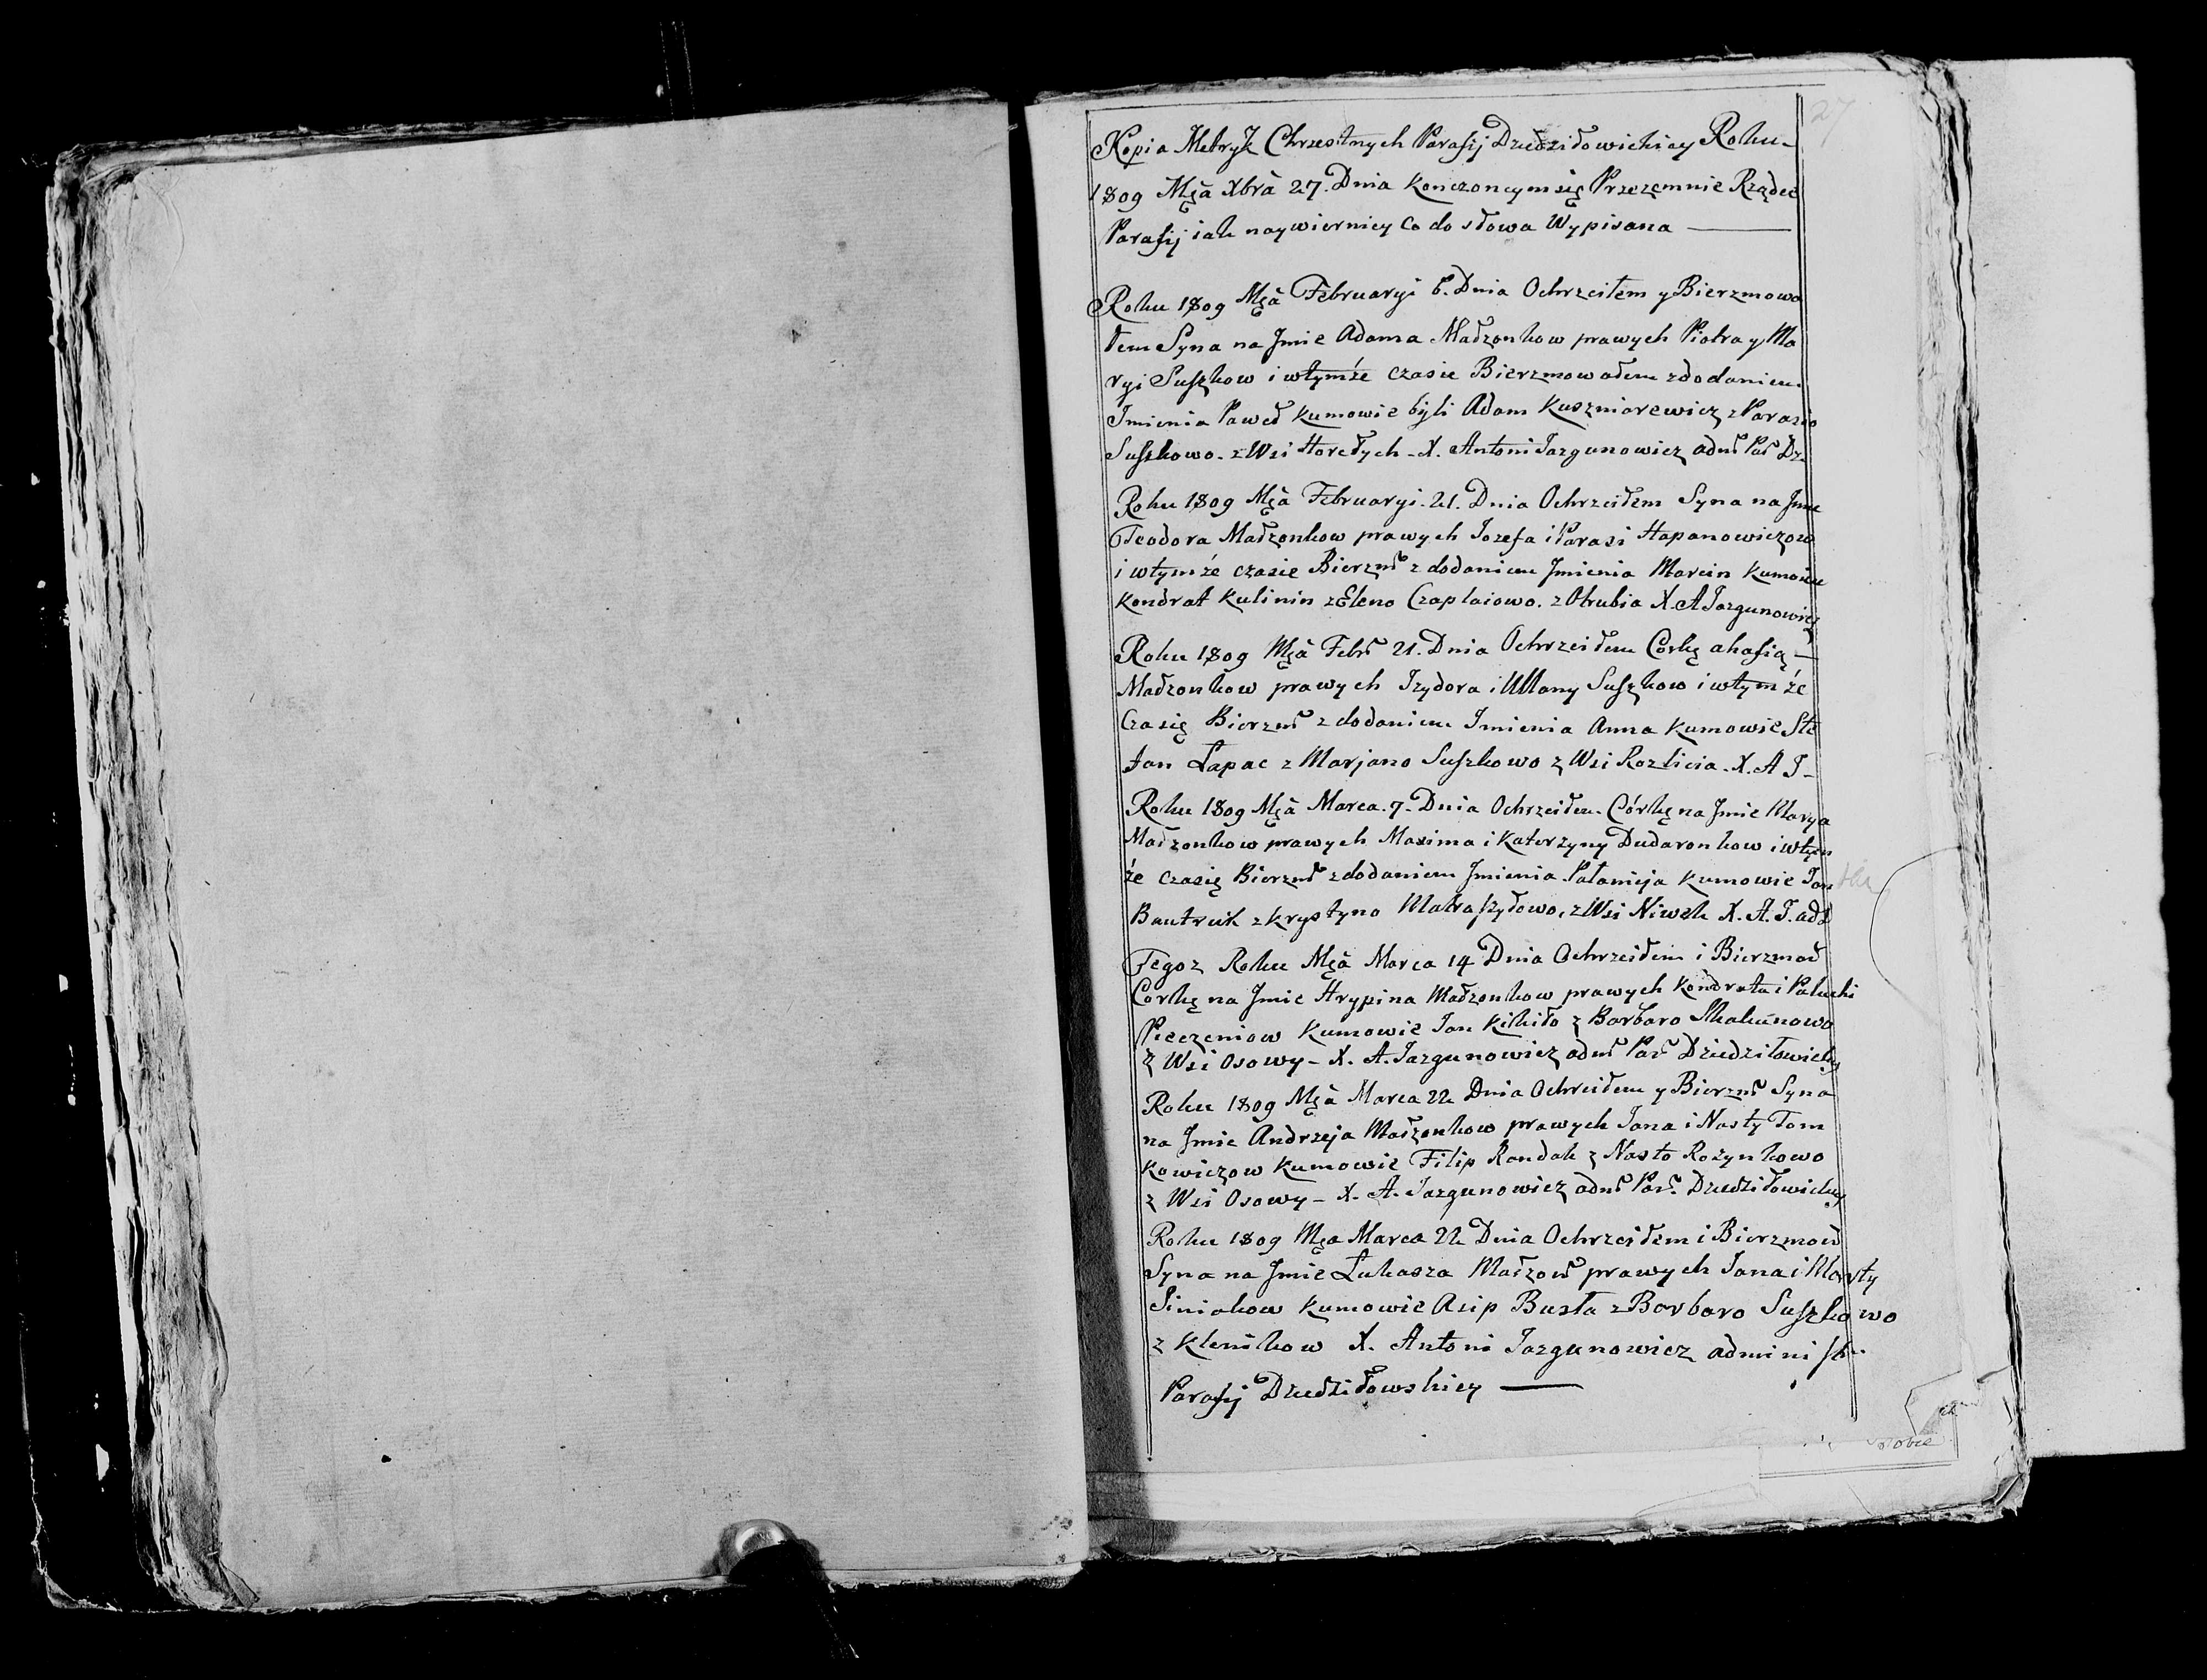 27
Kopia Metryk Chrzestnych Parafij Dziedziłowickiey Roku
1809 Mca Xbra 27. Dnia Konczoncym się Przezemnie Rządcę
Parafij iak naywierniey Co do słowa Wypisana
Roku 1809 Mca Februaryi 6. Dnia Ochrzciłem y Bierzmowa
łem Syna na Jmie Adama Małzonkow prawych Piotra y Ma
ryi Suszkow i wtymże czasie Bierzmowałem z dodaniem
Imienia Paweł Kumowie byli Adam Kuszniarewicz z Parasio
Suszkowo z Wsi Horełych - X. Antoni Jazgunowicz adm Par Dz
Roku 1809 Mca Februaryi 21. Dnia Ochrzciłem Syna na Jmie
Teodora Małzonkow prawych Jozefa i Parasi Hapanowiczow
i wtymże czasie Bierzm z dodaniem Jmienia Marcin Kumowie
Kondrat Kulinin z Eleno Czaplaiowo z Otrubia X. A Jazgunowicz
Roku 1809 Mca Febr 21. Dnia Ochrzciłem Corkę ahafią
Małzonkow prawych Izydora i Ullany Suszkow i wtymże
Czasię Bierzm z dodaniem Imienia Anna Kumowie Ste
fan Łapac z Marjano Suszkowo z Wsi Rozlicia. X. A J
Roku 1809 Mca Marca 7. Dnia Ochrzciłem Córkę na Jmie Marya
Małzonkow prawych Maxima i Katerzyny Dudaronkow i wtym
że czasię Bierzm z dodaniem Jmienia Pałamija Kumowie Jan
Bautruk z Krystyno Matraszyłowo, z Wsi Niwek X. A. J. ad
Tegoz Roku Mca Marca 14 Dnia Ochrzciłem i Bierzmoł
Corkę na Jmie Hrypina Małzonkow prawych Kondrata i Paluchi
Pieczeniow Kumowie Jan Kikiło z Barbaro Skakunowo
z Wsi Osowy - X. A. Jazgunowicz adm Par Dziedziłowickey
Roku 1809 Mca Marca 22 Dnia Ochrciłem y Bierzm Syna
na Jmie Andrzeja Małzonkow prawych Jana i Nasty Tom
kowiczow Kumowie Filip Rondak z Nasto Rozynkowo
z Wsi Osowy - X. A. Jazgunowicz adm Par. Dziedziłowickey
Roku 1809 Mca Marca 22 Dnia Ochrzciłem i Bierzmow
Syna na Jmie Łukasza Małzon prawych Jana i Marty
Siniakow Kumowie Asip Busła z Barbaro Suszkowo
z Klenikow X. Antoni Jazgunowicz administr
Parafij Dziedziłowskiey